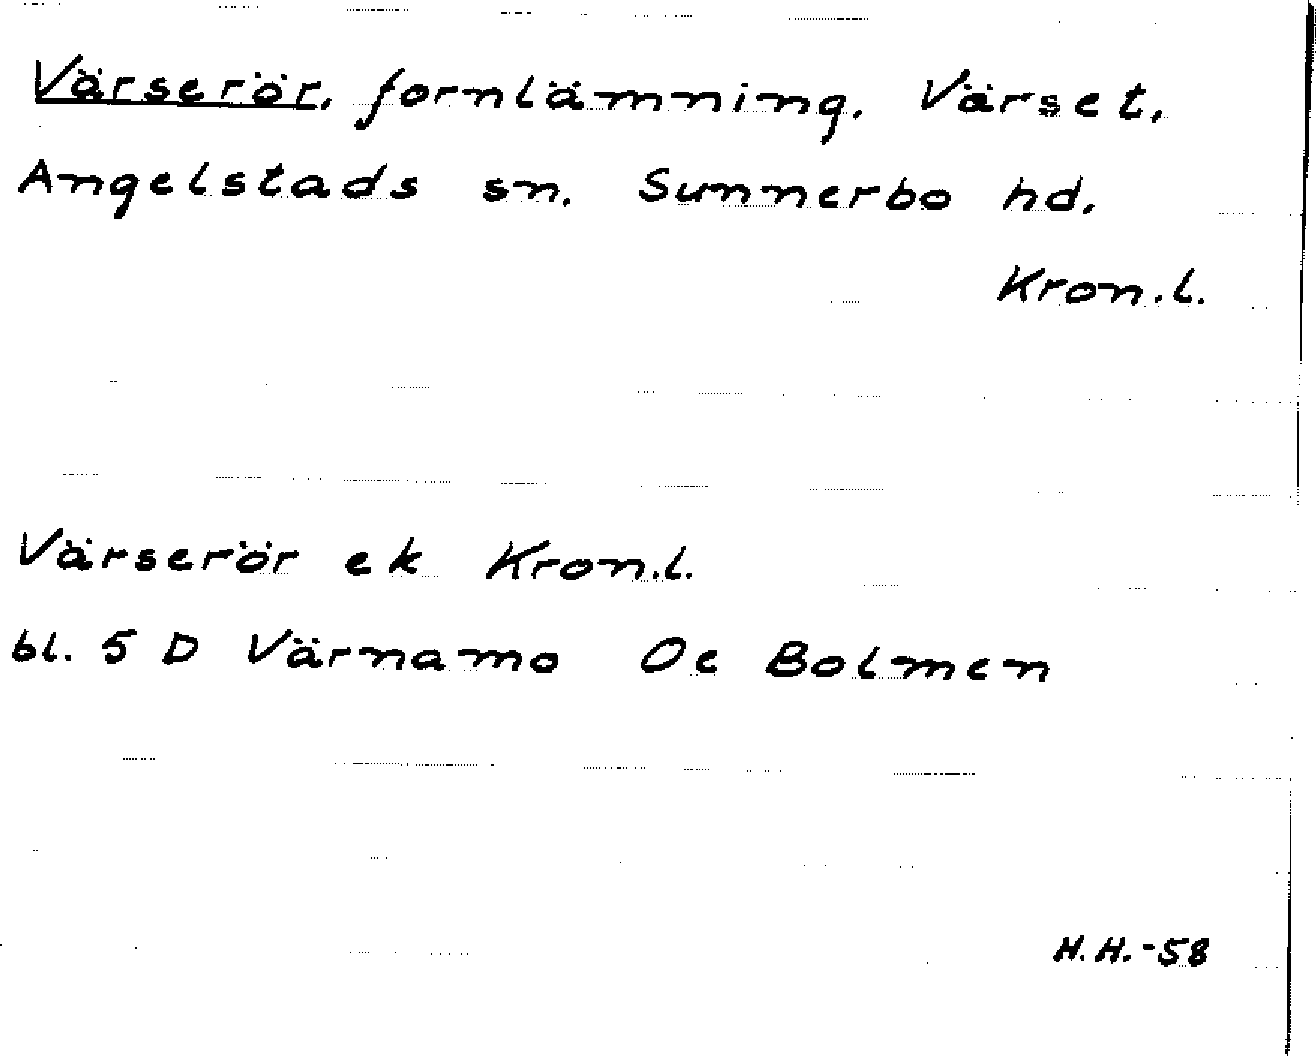 Värserör, fornlämning. Värset,
Angelstads sn. Sunnerbo hd.
Kron.l.
Värserör ek Kron.l.
bl. 5 D Värnamo Oe Bolmen
H.H.-58